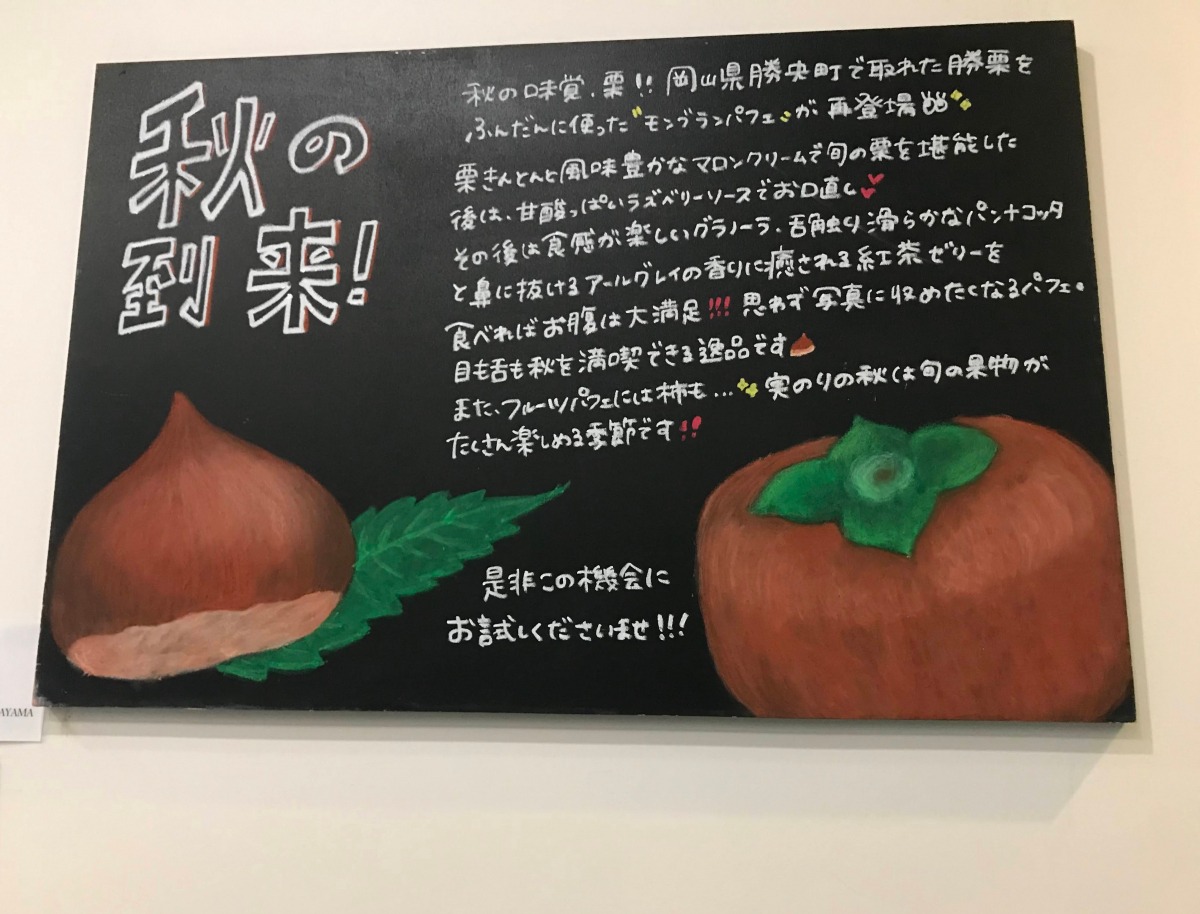 秋の
到来!
秋の味覚、栗!! 岡山県勝央町で取れた勝栗を
ふんだんに使った"モンブランパフェ"が再登場
栗きんとんと風味豊かなマロンクリームで旬の栗を堪能した
後は、甘酸っぱいラズベリーソースでお口直し
その後は食感が楽しいグラノーラ、舌触り滑らかなパンナコッタ
と鼻に抜けるアールグレイの香りに癒される紅茶ゼリーを
食べればお腹は大満足!!! 思わず写真に収めたくなるパフェ。
目も舌も秋を満喫できる逸品です
また、フルーツパフェには柿も... 実のりの秋は旬の果物が
たくさん楽しめる季節です!!
是非この機会に
お試しくださいませ!!!
AYAMA